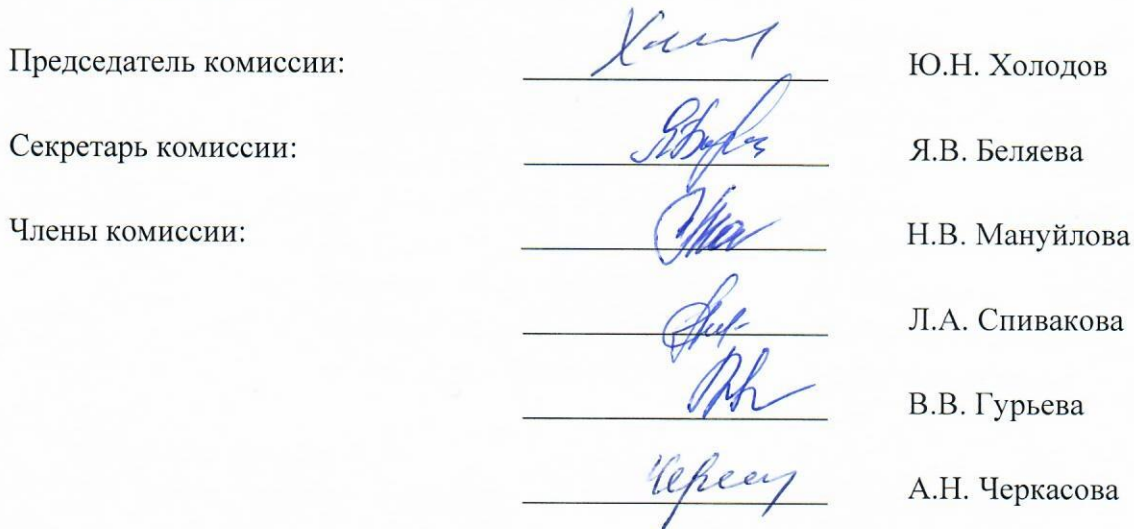 Председатель комиссии: Ю.Н. Холодов
Секретарь комиссии: Я.В. Беляева
Члены комиссии: Н.В. Мануйлова
Л.А. Спивакова
В.В. Гурьева
А.Н. Черкасова